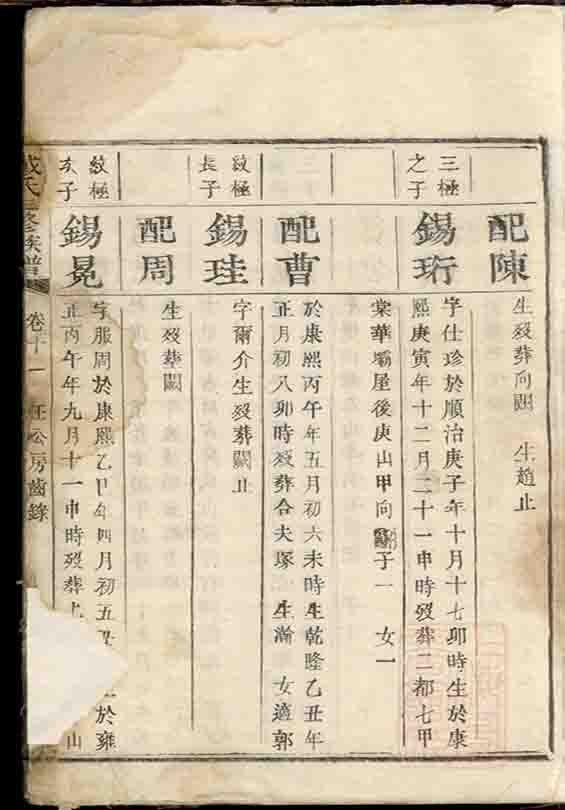 配陳
生歿葬向闕　生趙止
三極之子
錫珩
字仕珍於順治庚子年十月十七卯時生於康
熙庚寅年十二月二十一申時歿葬二都七甲
棠華壩屋後庚山甲向　子一　女一
配曹
於康熙丙午年五月初六未時生乾隆乙丑年
正月初八卯時歿葬合夫塚　生瀚　女適郭
紋極長子
錫珪
字爾介生歿葬闕止
配周
生歿葬闕
紋極次子
錫冕
字服周於康熙乙巳年四月初五丑　於雍
正丙午年九月十一申時歿葬　山
氏三修族譜　卷十一　任公房齒錄